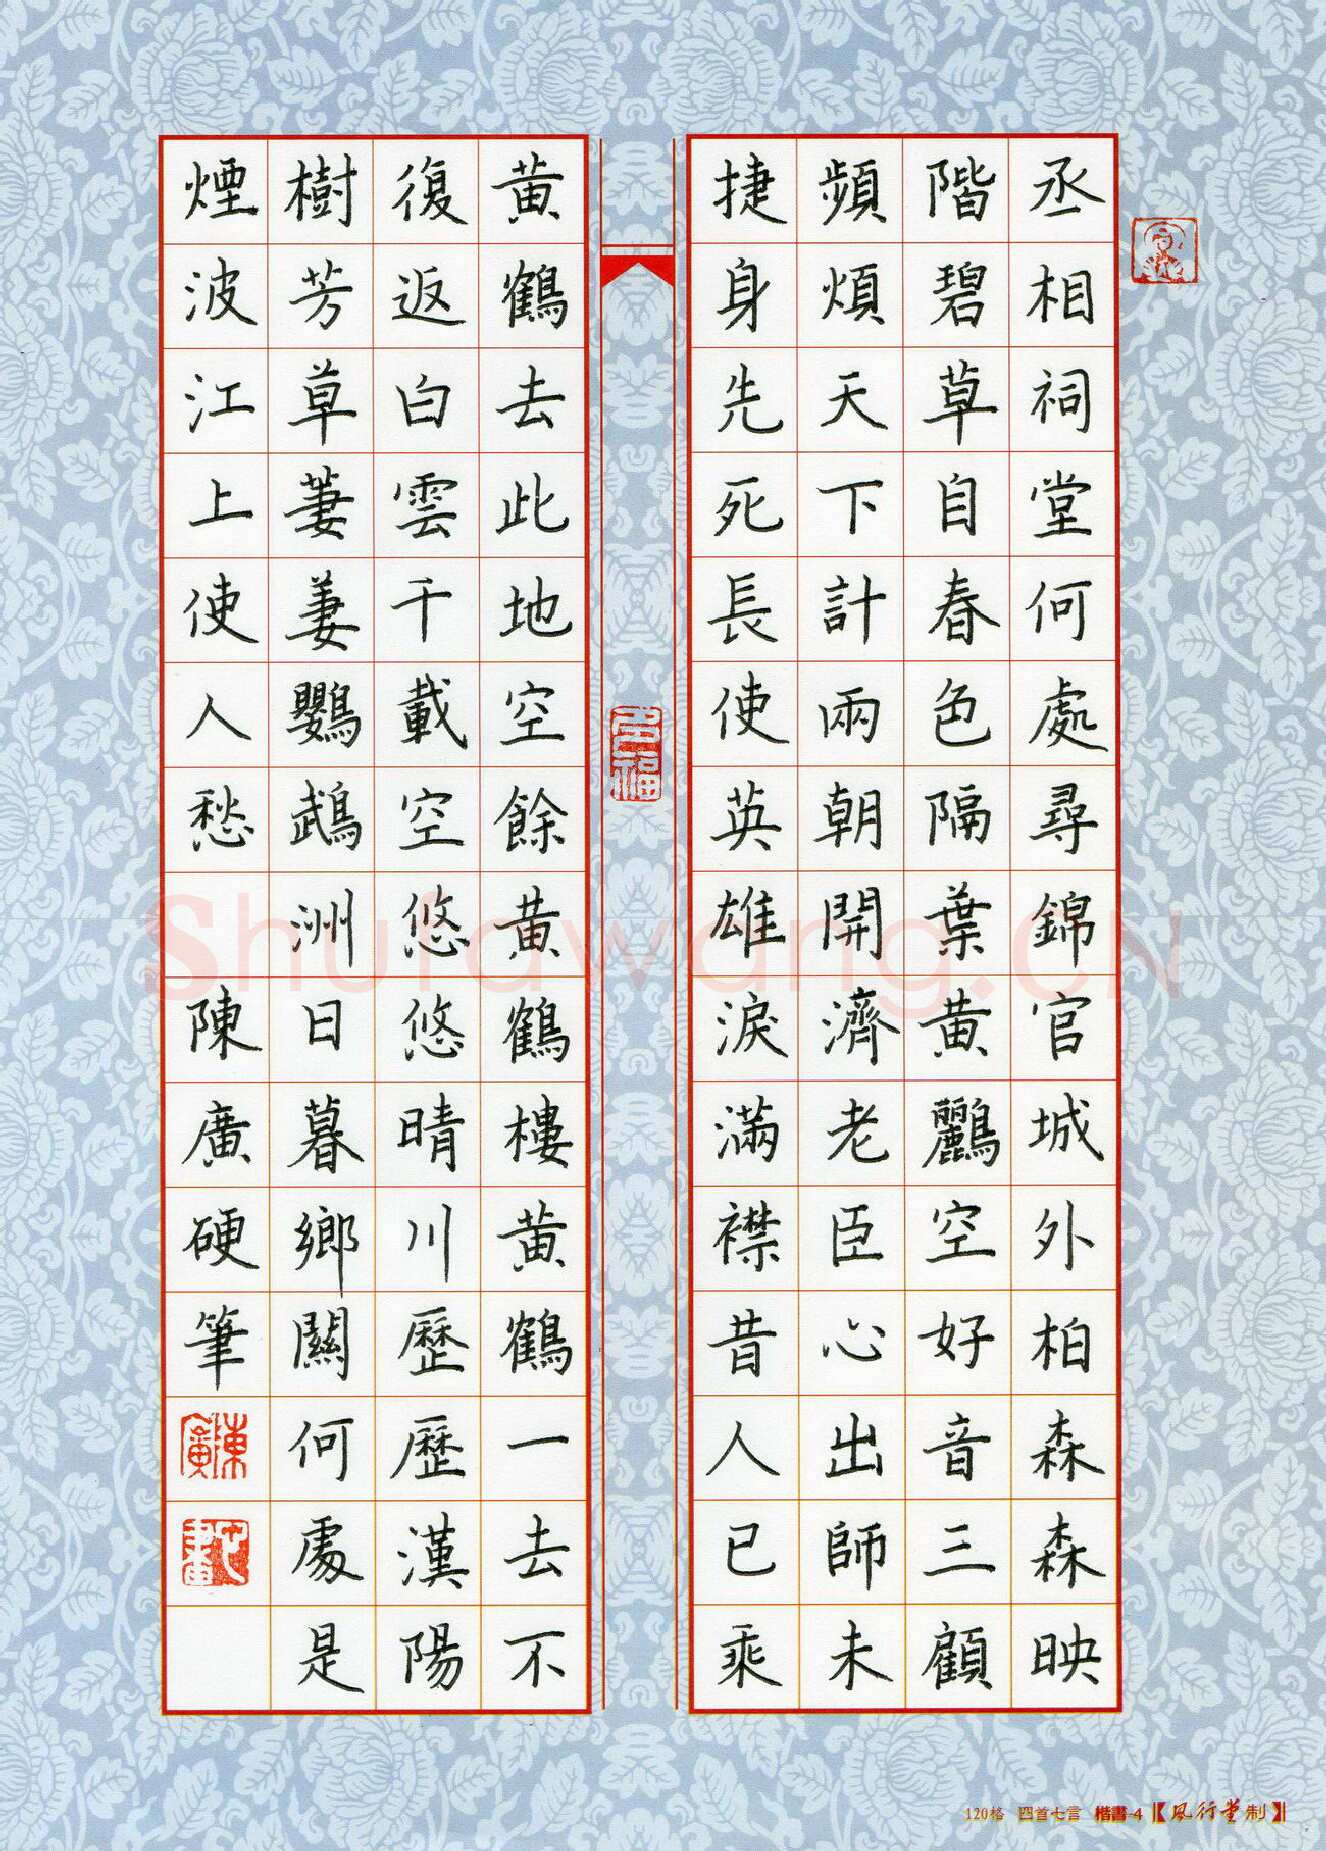 丞相祠堂何處尋錦官城外柏森森映
階碧草自春色隔葉黃鸝空好音三顧
頻煩天下計兩朝開濟老臣心出師未
捷身先死長使英雄淚滿襟昔人已乘
多福
黃鶴去此地空餘黃鶴樓黃鶴一去不
復返白雲千載空悠悠晴川歷歷漢陽
樹芳草萋萋鸚鵡洲日暮鄉關何處是
煙波江上使人愁 陳廣硬筆
陳廣
120格 四首七言 楷書-4【風行堂制】
Shufawang.CN